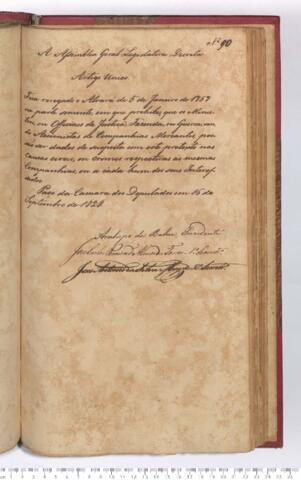 Nº 90
A Assemblea Geral Legislativa Decreta
Artigo Unico
Fica revogado o Alvará de 5 de Janeiro de 1757
na parte somente, em que prohibe, que os Minis-
tros, ou Officiaes de Justiça, Fazenda, ou Guerra, sen-
do Accionistas de Companhias Mercantes, pos-
são ser dados de suspeito com este pretexto nas
causas civeis, ou crimes respectivas as mesmas
Companhias, ou a cada hum dos seus Interes-
sados.
Paço da Camara dos Deputados em 15 de
Septembro de 1828
Arcebispo da Bahia, Presidente
José Antonio da Silva Maya 2º Secretº